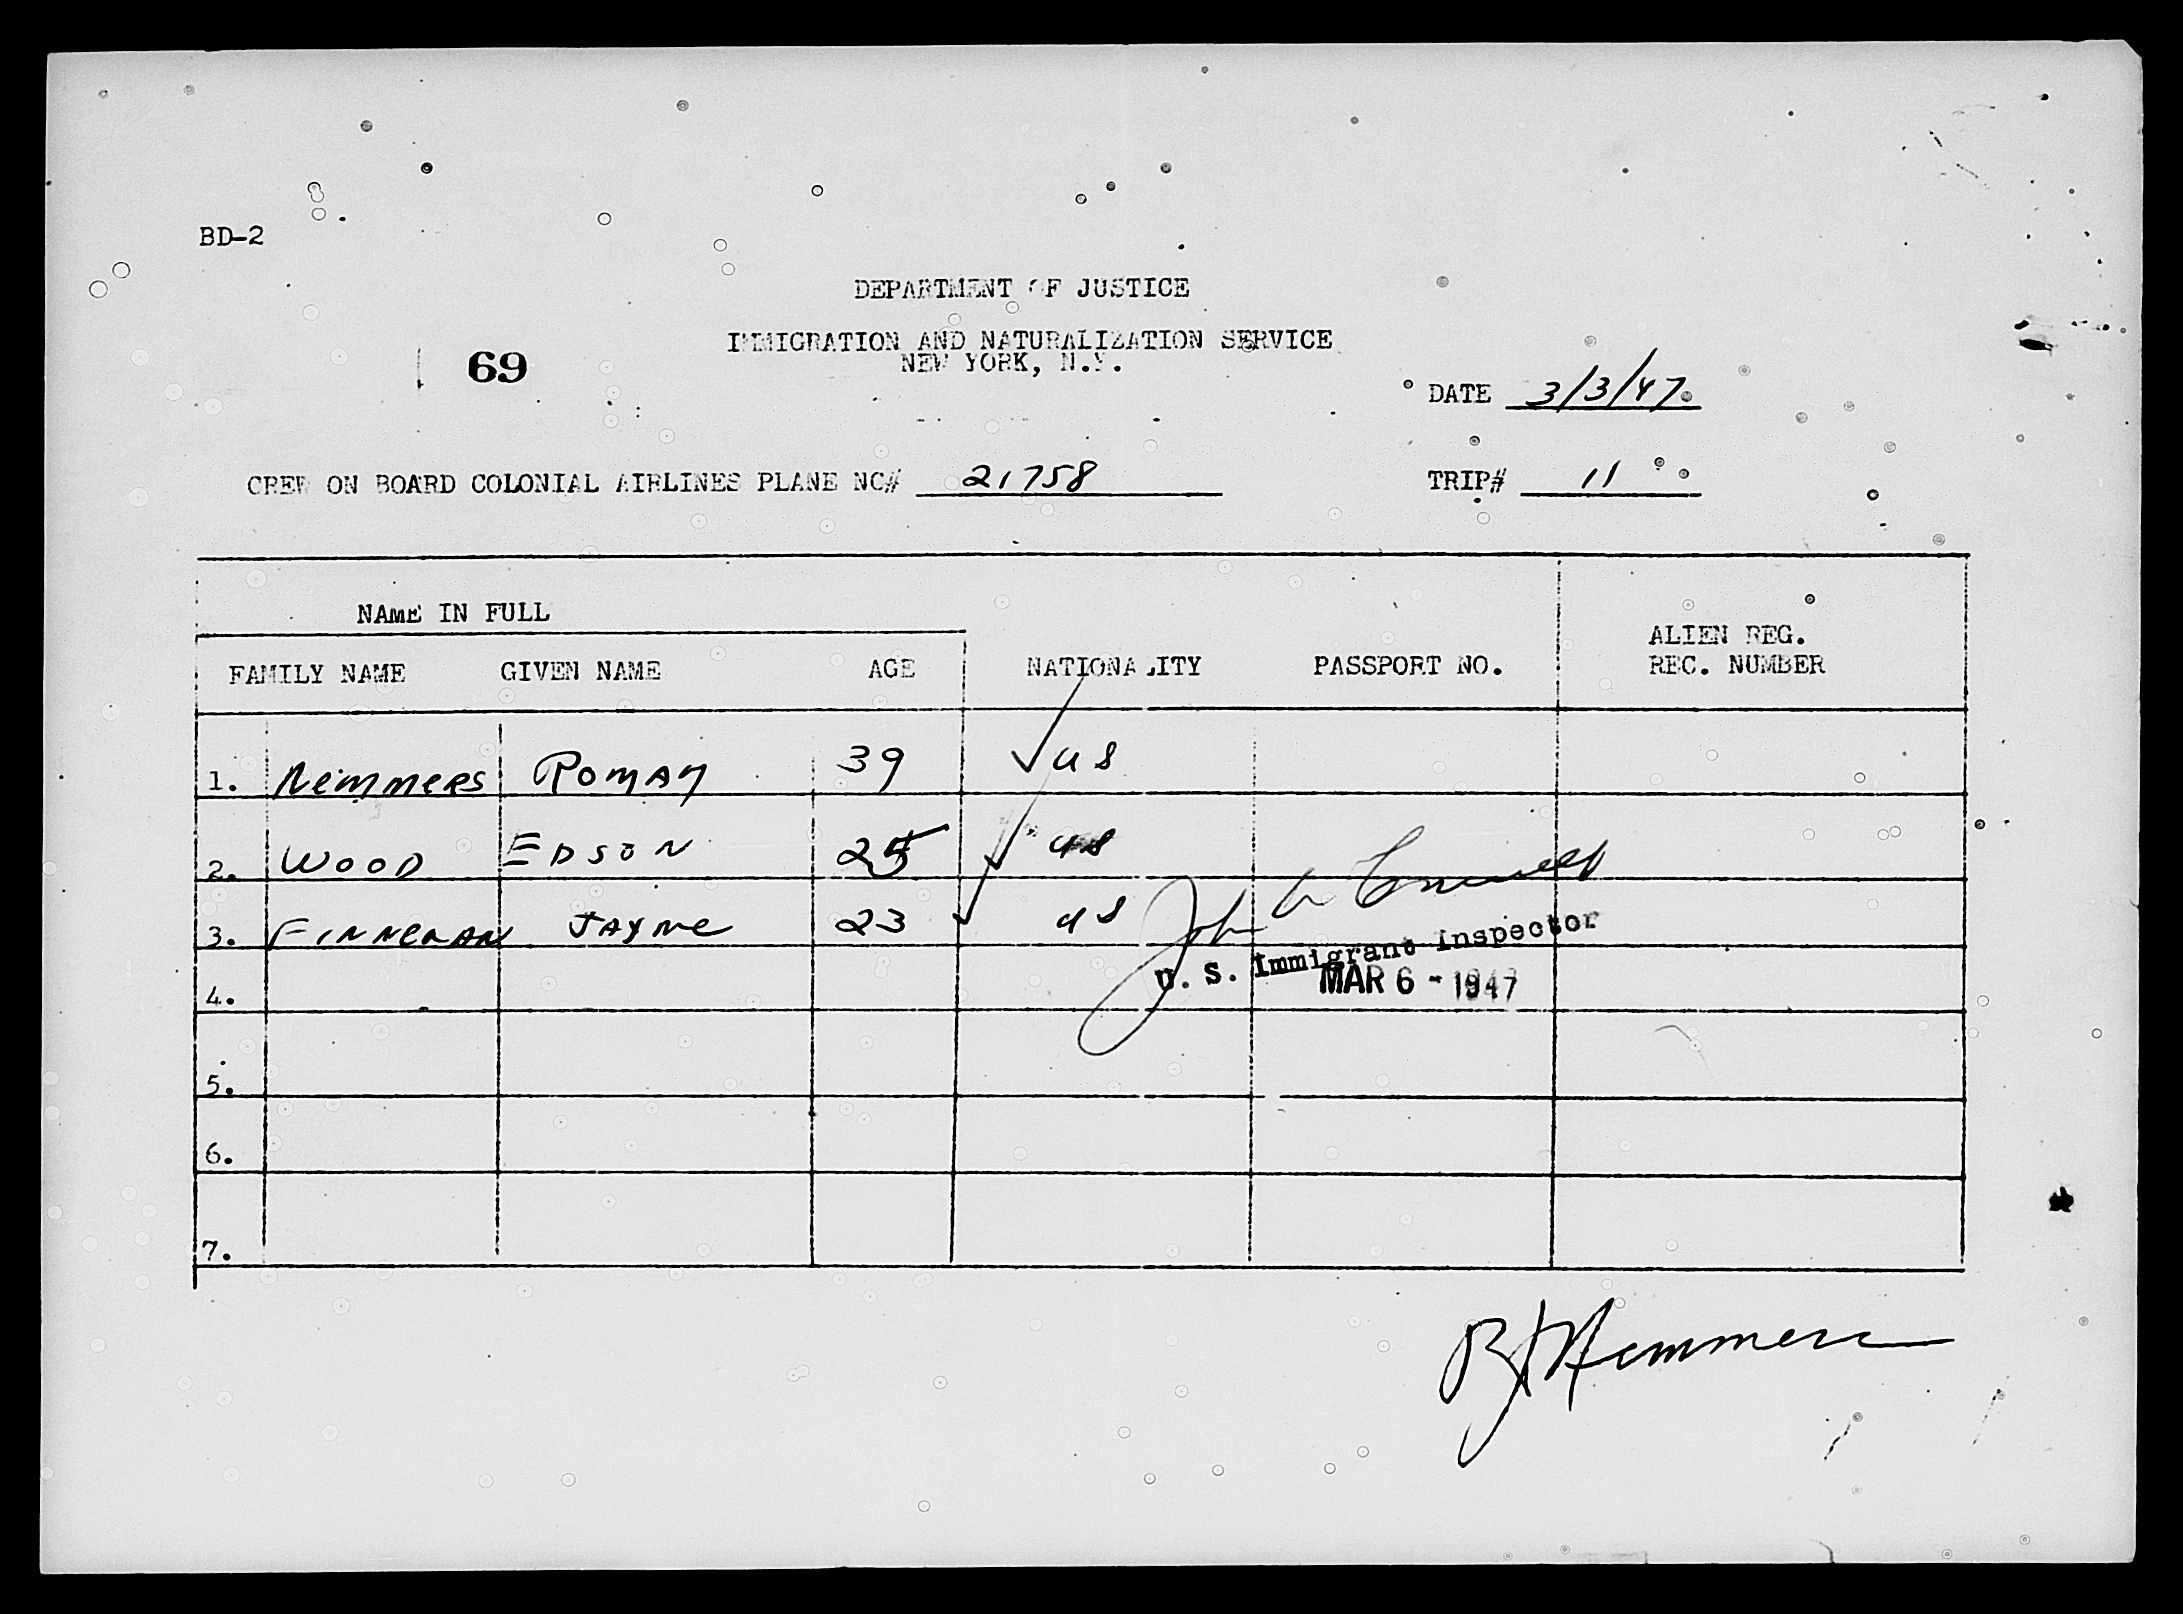 BD-2
DEPARTMENT OF JUSTICE
IMMIGRATION AND NATURALIZATION SERVICE
NEW YORK, N.Y.
69
DATE 3/3/47
CREW ON BOARD COLONIAL AIRLINES PLANE NC# 21758 TRIP# 11
NAME IN FULL
FAMILY NAME GIVEN NAME AGE NATIONALITY PASSPORT NO. ALIEN REG. REC. NUMBER
1. Nemmers Roman 39 US
2. WOOD EDSON 25 US
3. FINNERAN JAYNE 23 US
John
U. S. Immigrant Inspector
MAR 6 - 1947
4.
5.
6.
7.
RJ Nemmers